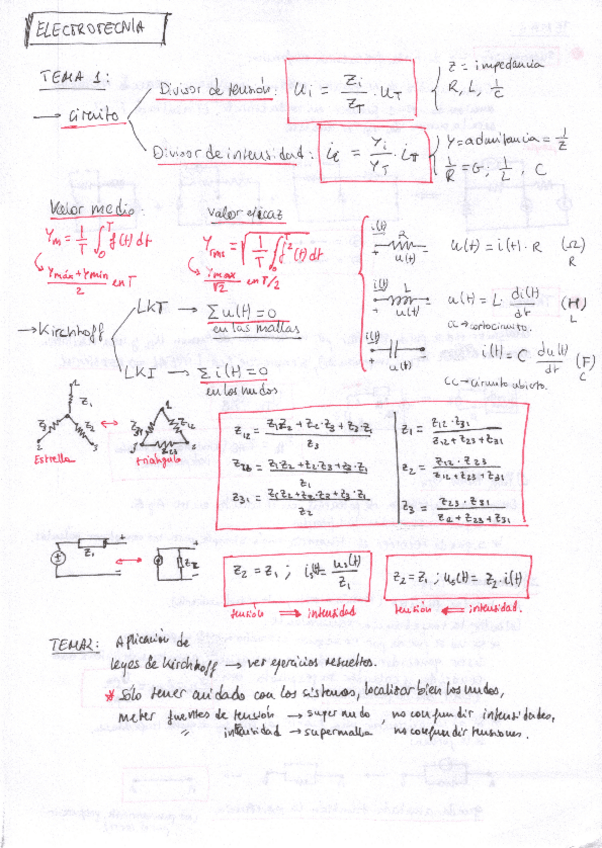 ELECTROTECNIA
TEMA 1:
→ Circuito
Divisor de tensión: Ui = Zi/ZT · UT
Z = impedancia
R, L, 1/C
Divisor de intensidad: ii = Yi/YT · iT
Y = admitancia = 1/Z
1/R = G, 1/L, C
Valor medio:
Ym = 1/T ∫₀ᵀ f(t) dt
Ymáx + Ymin / 2 en T
valor eficaz
Yrms = √(1/T ∫₀ᵀ f²(t) dt)
Ymax/√2 en T/2
i(t) R u(t)
u(t) = i(t) · R (Ω) R
i(t) L u(t)
u(t) = L · di(t)/dt (H) L
cc → cortocircuito.
i(t) u(t)
i(t) = C du(t)/dt (F) C
CC → circuito abierto.
→ Kirchhoff
LKT → Σ u(t) = 0
en las mallas
LKI → Σ i(t) = 0
en los nudos
Z1
Estrella
Z12 Z23
triángulo
Z12 = Z1Z2 + Z2·Z3 + Z3·Z1 / Z3
Z1Z2 + Z2·Z3 + Z3·Z1 / Z1
Z31 = Z1Z2 + Z2·Z3 + Z3·Z1 / Z2
Z1 = Z12 · Z31 / Z12 + Z23 + Z31
Z2 = Z12 · Z23 / Z12 + Z23 + Z31
Z3 = Z23 · Z31 / Z12 + Z23 + Z31
Z1 Z2
Z2 = Z1 ; is(t) = us(t)/Z1
tensión ⟹ intensidad
Z2 = Z1 ; us(t) = Z2 · i(t)
tensión ⟸ intensidad.
TEMA2: Aplicación de
leyes de Kirchhoff → ver ejercicios resueltos.
* Sólo tener cuidado con los sistemas, localizar bien los nudos,
meter fuentes de tensión → supernudo, no confundir intensidades,
" intensidad → supermalla no confundir tensiones.